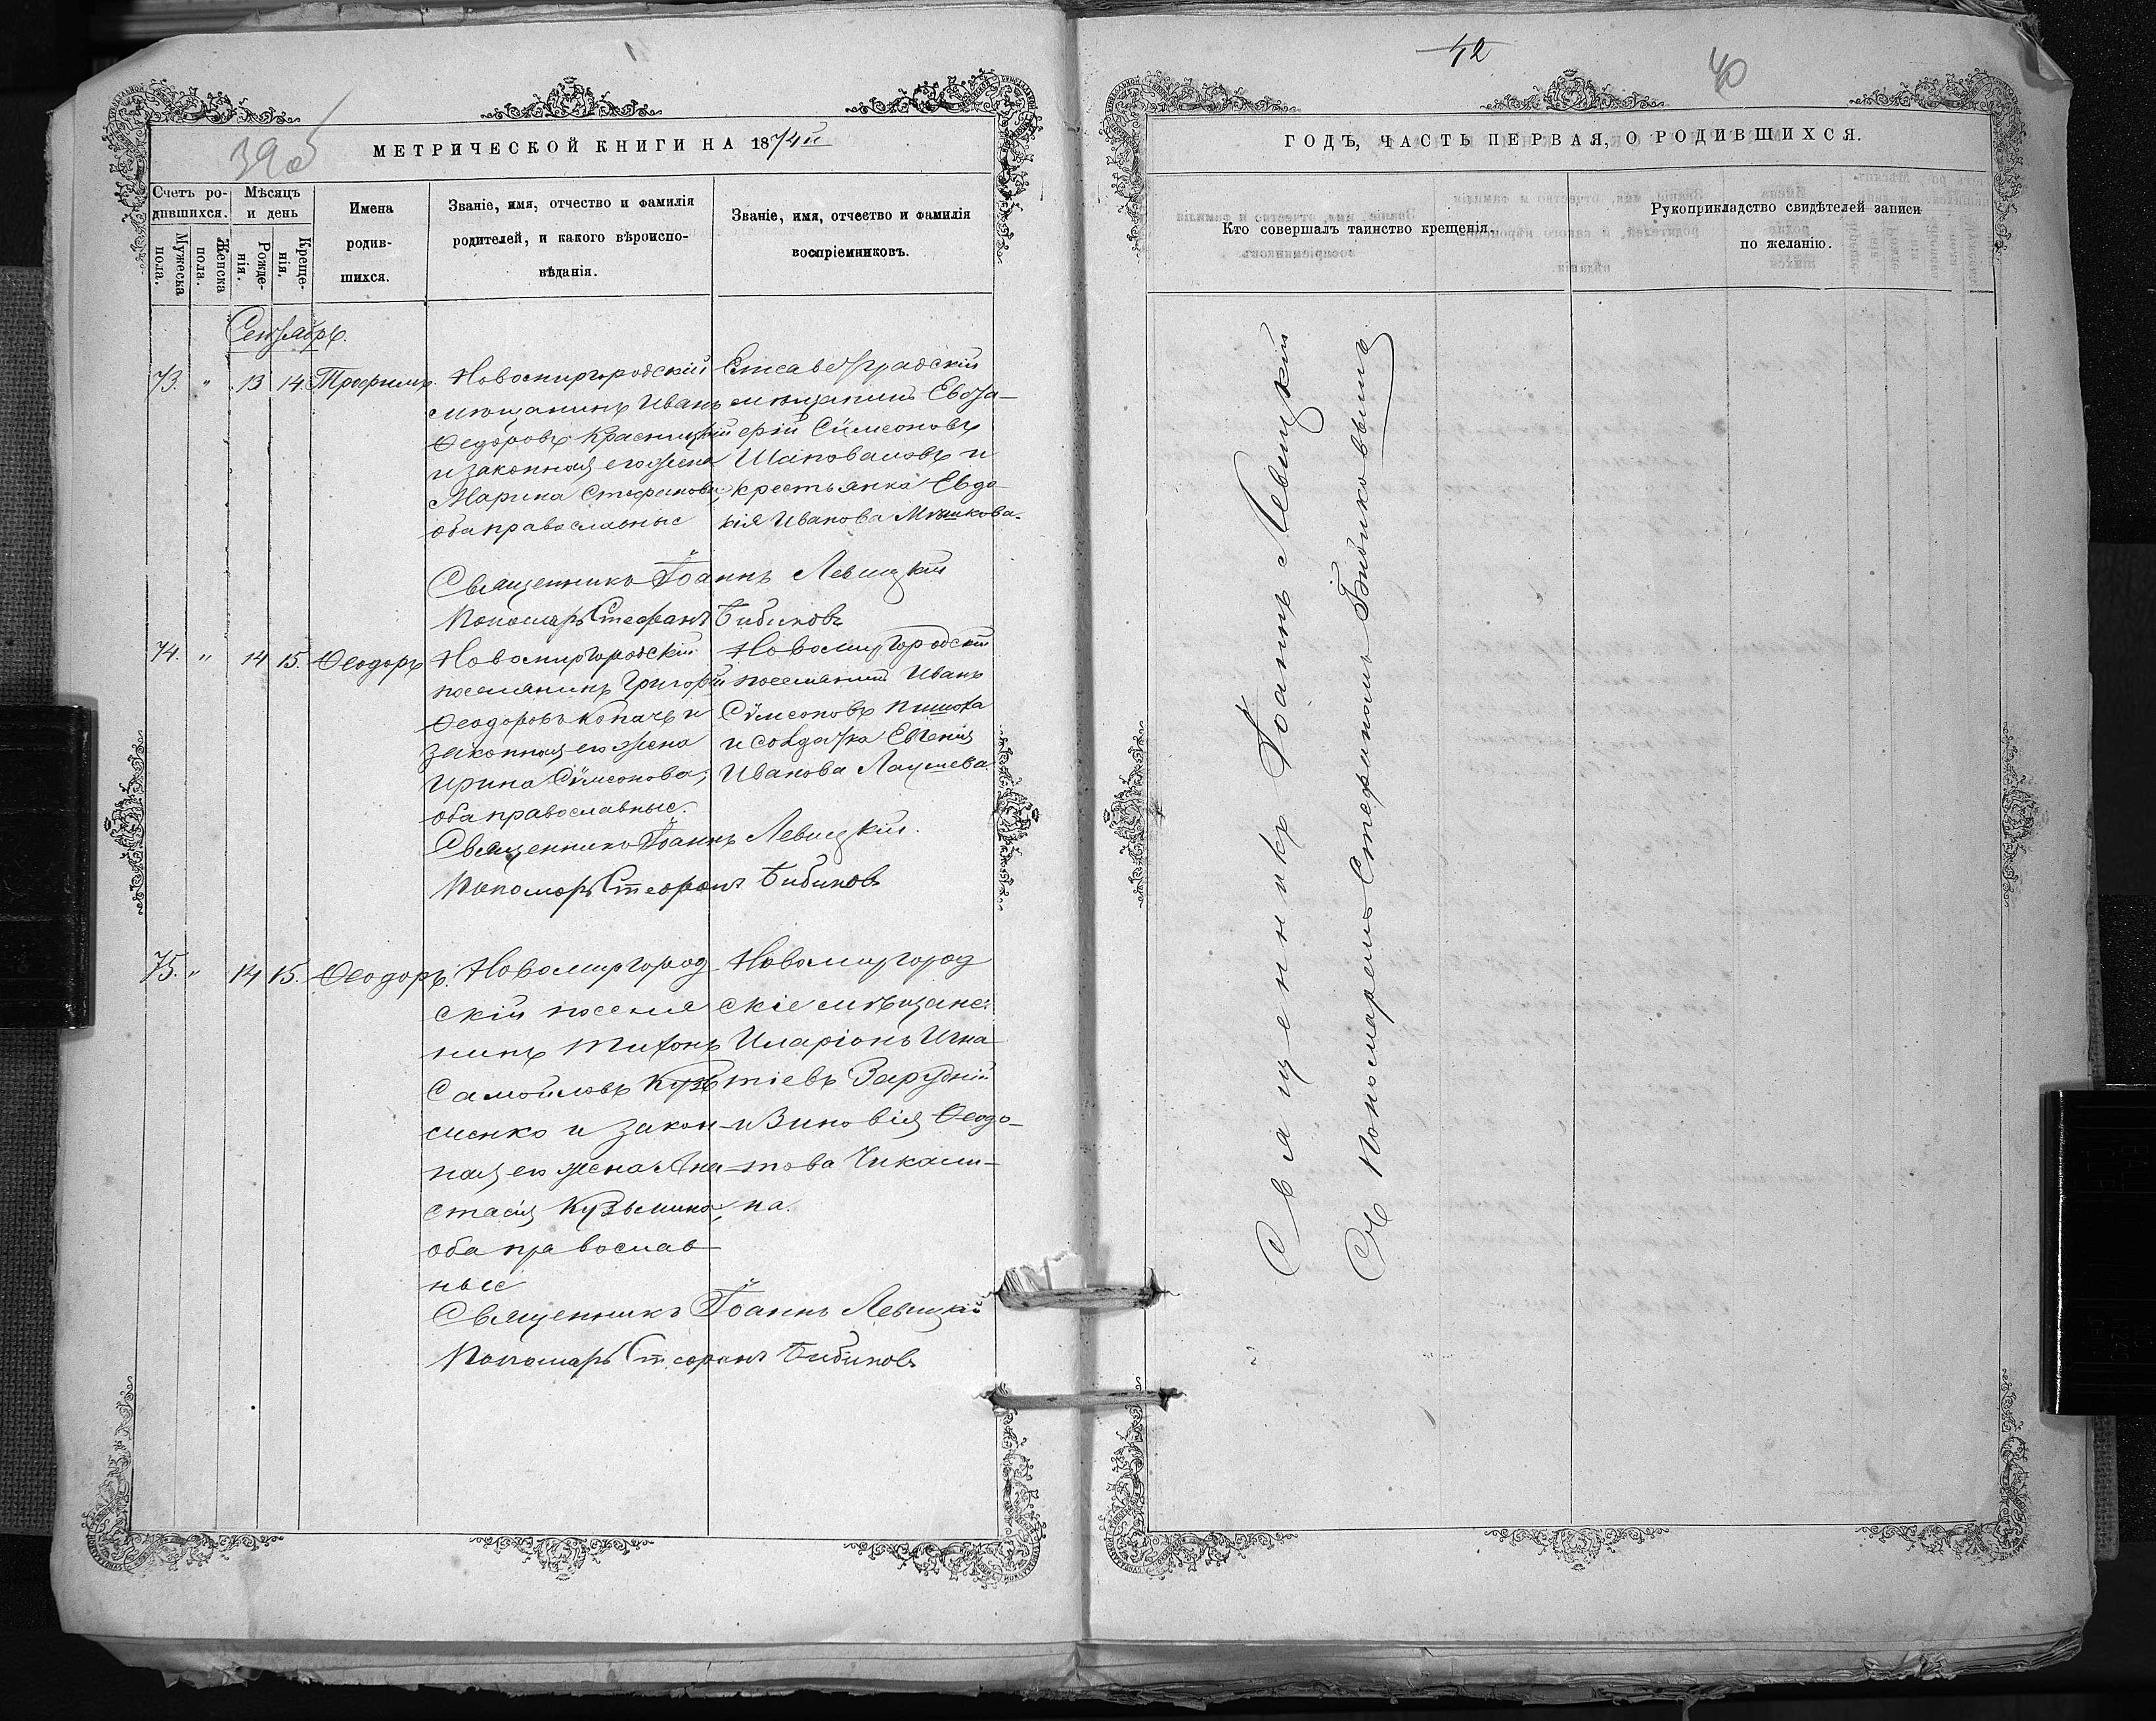 39об
МЕТРИЧЕСКОЙ КНИГИ НА 1874й
Счетъ родившихся.
Мужеска пола.
Женска пола.
Мѣсяцъ и день
Рожденія.
Крещенія.
Имена родившихся.
Званіе, имя, отчество и фамилія
родителей, и какого вѣроиспо-
вѣданія.
Званіе, имя, отчество и фамилія
воспріемниковъ.
Сентябрь.
73. " 13 14. Трофимъ.
Новомиргородскій
мѣщанинъ Иванъ
Ѳедоровъ Красницкій
и законная его жена
Марина Стефанова,
оба православные
Елисаветградскій
мѣщанинъ Евста-
фій Сѵмеоновъ
Шаповаловъ и
крестьянка Евдо-
кія Иванова
Священникъ Іоаннъ Левицкій
Пономарь Стефанъ Бибиковъ
74. " 14 15. Ѳеодоръ
Новомиргородскій
поселянинъ Григорій
Ѳеодоровъ Копачъ и
законная его жена
Ирина Сѵмеонова;
оба православные.
Новомиргородскій
поселянинъ Иванъ
Сѵмеоновъ
и солдатка Евгенія
Иванова
Священникъ Іоаннъ Левицкій.
Пономарь Стефанъ Бибиковъ
75. " 14 15. Ѳеодоръ.
Новомиргород-
скій поселя
нинъ Тихонъ
Самойловъ Кузь
менко и закон-
ная его жена Ана-
стасія Кузьмина,
оба православ-
ные
Новомиргород
скіе мѣщане:
Иларіонъ Игна-
тіевъ Зарудній
и Зиновія Ѳеодо-
това Чикали-
на.
Священникъ Іоаннъ Левицкій
Пономарь Стефанъ Бибиковъ
42
40
ГОДЪ, ЧАСТЬ ПЕРВАЯ, О РОДИВШИХСЯ.
Кто совершалъ таинство крещенія.
Рукоприкладство свидѣтелей записи
по желанію.
Священникъ Іоаннъ Левицкій
Съ Пономаремъ Стефаномъ Бибиковымъ